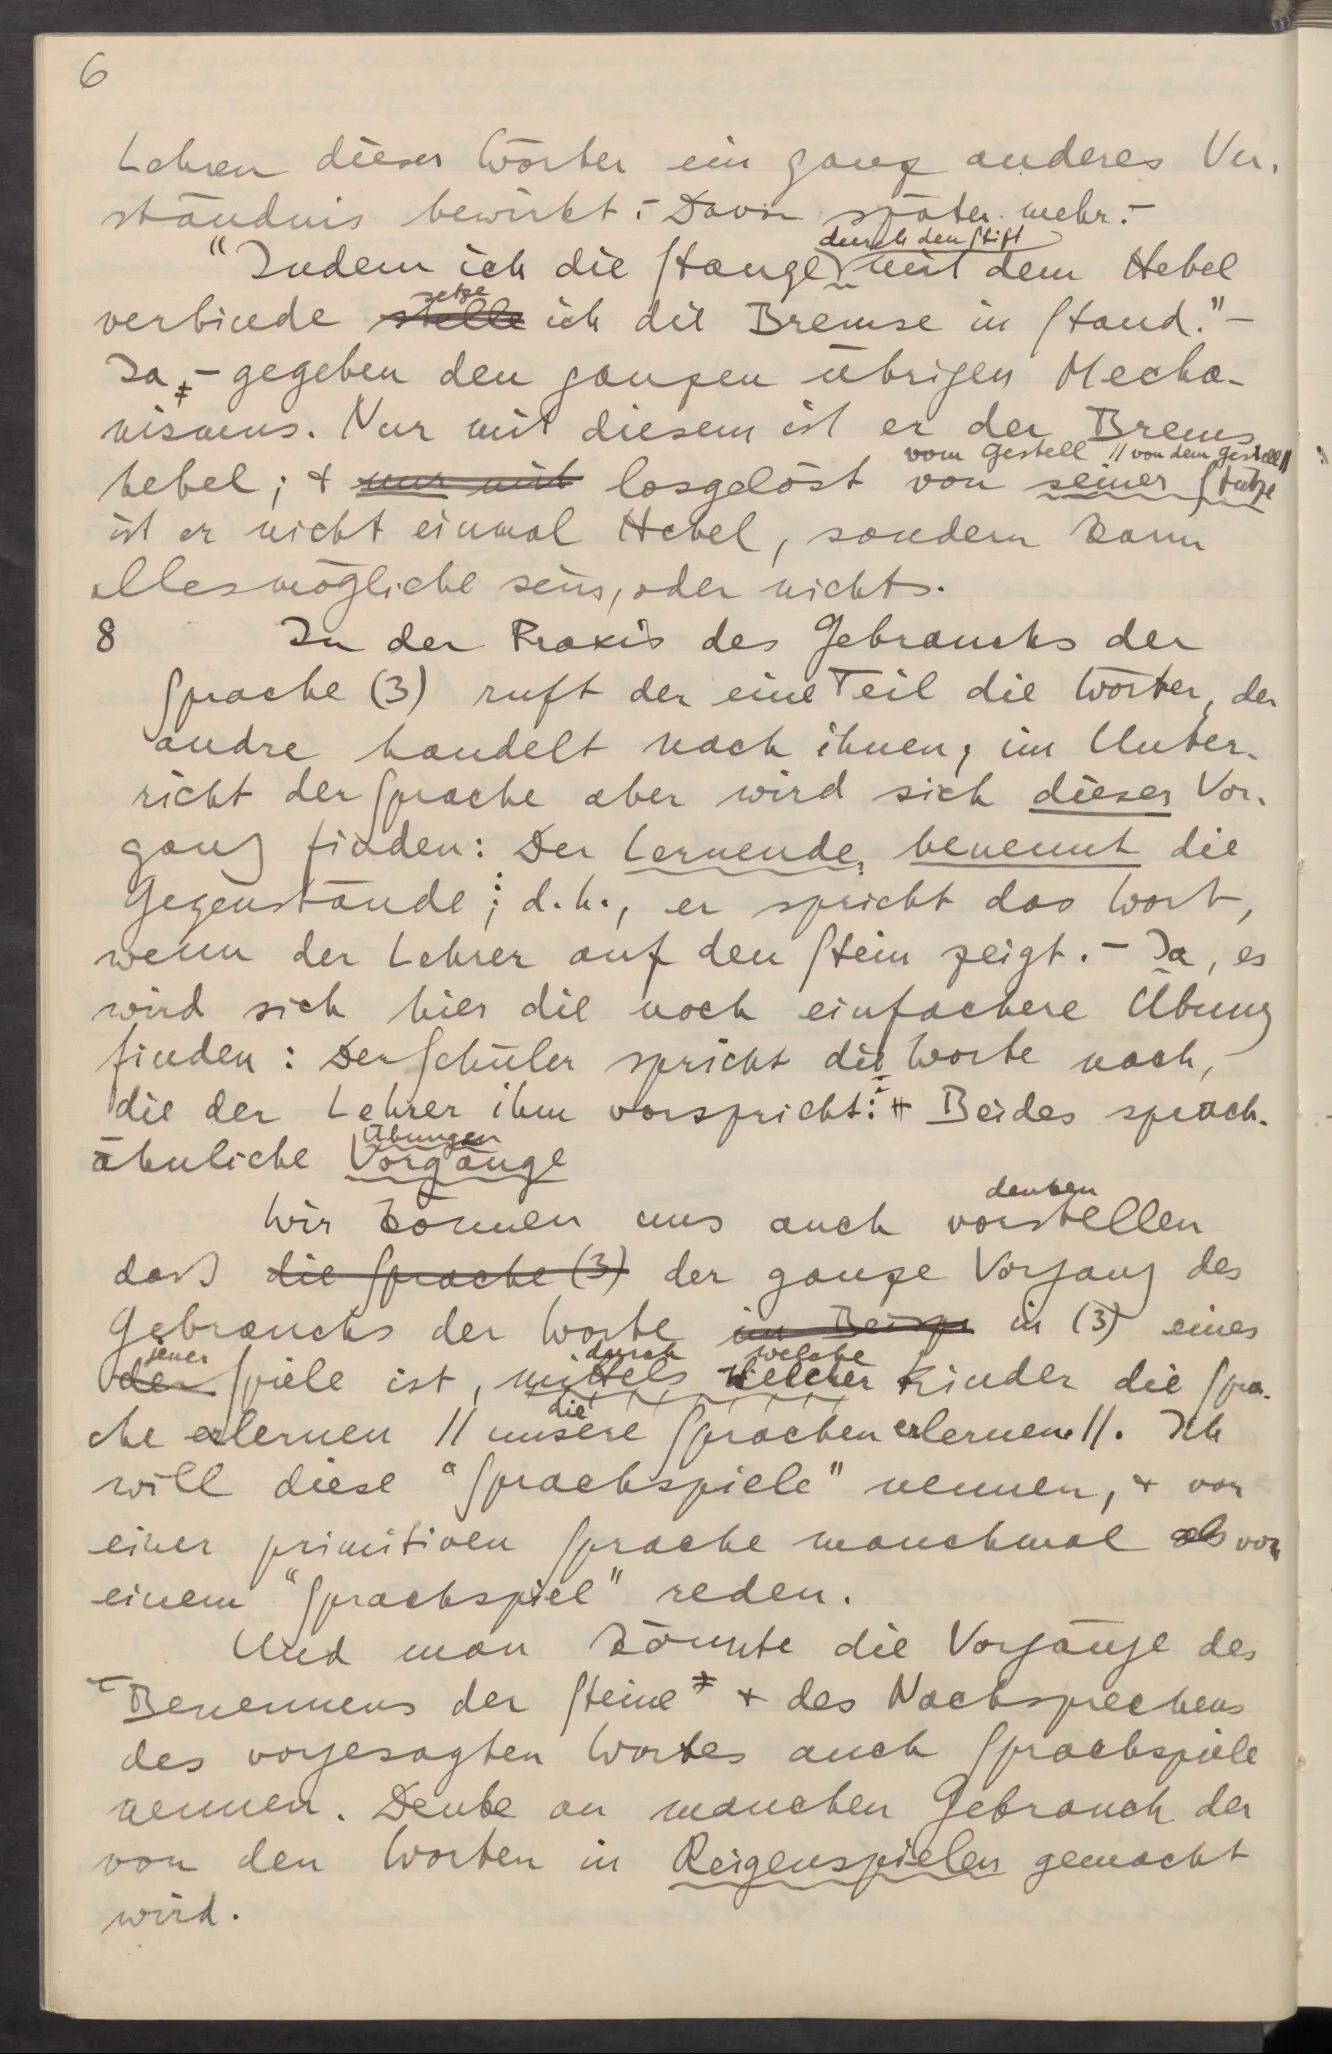 6
Lehren dieser Wörter ein ganz anderes Ver-
ständnis bewirkt. – Davon später mehr. –
durch den Stift
"Indem ich die Stange mit dem Hebel
setze
verbinde stelle ich die Bremse in Stand." –
Ja, – gegeben den ganzen übrigen Mecha-
nismus. Nur mit diesem ist er der Brems
vom Gestell // von dem Gestell //
hebel; + nur mit losgelöst von seiner Stütze
ist er nicht einmal Hebel, sondern kann
alles mögliche sein, oder nichts.
8 In der Praxis des Gebrauchs der
Sprache (3) ruft der eine Teil die Wörter, der
andre handelt nach ihnen; im Unter-
richt der Sprache aber wird sich dieser Vor-
gang finden: Der Lernende benennt die
Gegenstände; d.h., er spricht das Wort,
wenn der Lehrer auf den Stein zeigt. – Ja, es
wird sich hier die noch einfachere Übung
finden: Der Schüler spricht die Worte nach,
die der Lehrer ihm vorspricht: Beides sprach-
Übungen
ähnliche Vorgänge
denken
Wir können uns auch vorstellen
daß die Sprache (3) der ganze Vorgang des
Gebrauchs der Worte im Beisp in (3) eines
jener durch welche
der Spiele ist, mittels welcher Kinder die Spra-
die
che erlernen // unsere Sprachen erlernen //. Ich
will diese "Sprachspiele" nennen, + von
einer primitiven Sprache manchmal als von
einem "Sprachspiel" reden.
Und man könnte die Vorgänge des
Benennens der Steine + des Nachsprechens
des vorgesagten Wortes auch Sprachspiele
nennen. Denke an manchen Gebrauch der
von den Worten in Reigenspielen gemacht
wird.